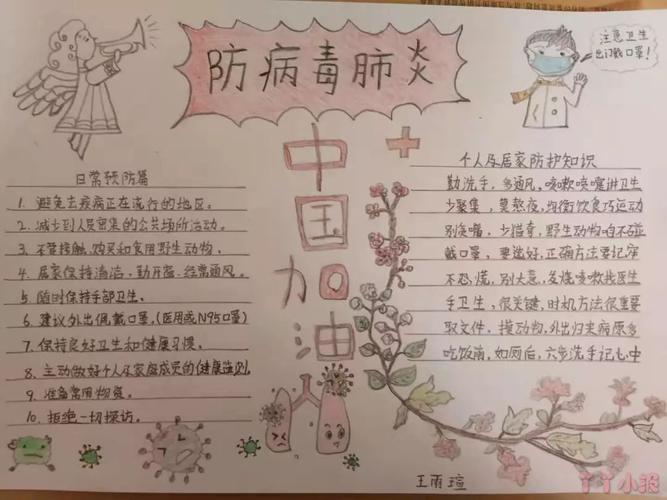 防病毒肺炎
注意卫生
出门戴口罩!
中国加油
日常预防篇
1. 避免去疾病正在流行的地区。
2. 减少到人员密集的公共场所活动。
3. 不要接触、购买和食用野生动物。
4. 居家保持清洁,勤开窗,经常通风。
5. 随时保持手部卫生。
6. 建议外出佩戴口罩。(医用或N95口罩)
7. 保持良好卫生和健康习惯。
8. 主动做好个人及家庭成员的健康监测。
9. 准备常用物资。
10. 拒绝一切探访。
个人及居家防护知识
勤洗手,多通风,咳嗽喷嚏讲卫生
少聚集,莫熬夜,均衡饮食巧运动
别侥嘴,少猎奇,野生动物咱不碰
戴口罩,要选好,正确方法要记牢
不恐慌,别大意,发烧咳嗽找医生
手卫生,很关键,时机方法很重要
取文件,摸动物,外出归来病原多
吃饭前,如厕后,六步洗手记心中
王雨瑄
丫丫小报